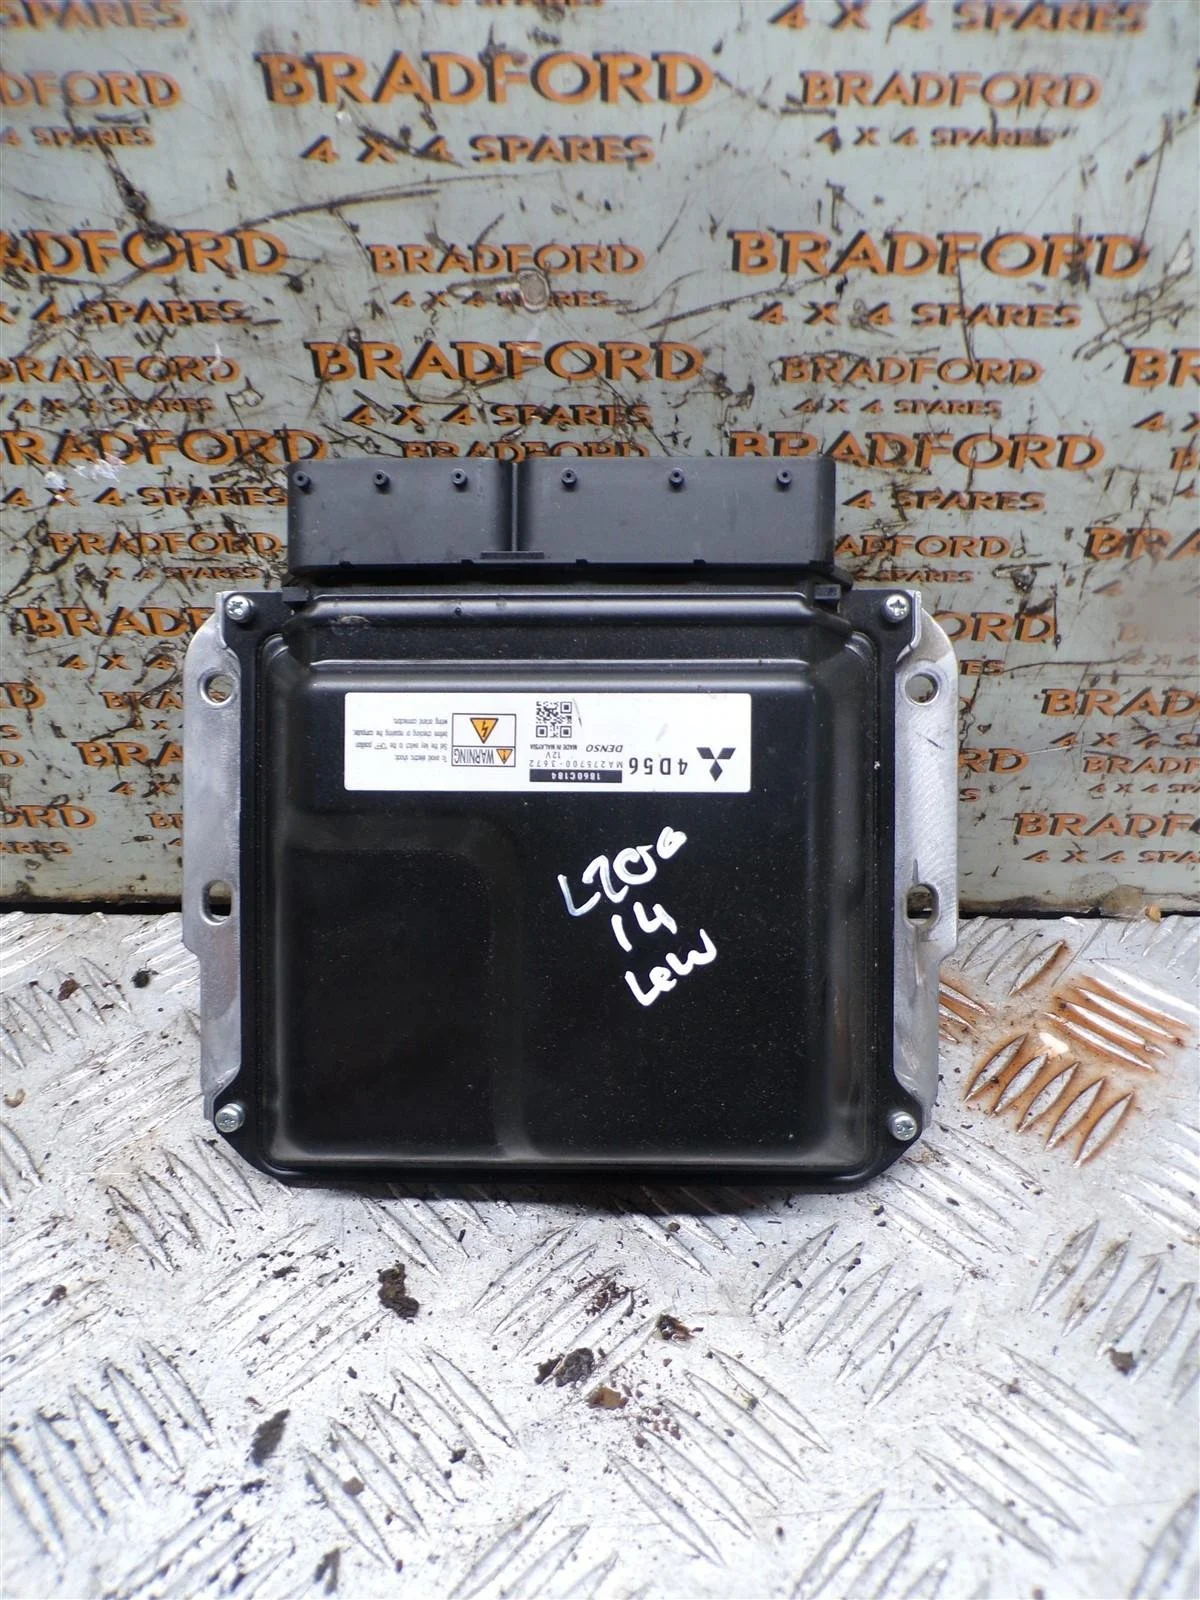 4 X 4 SPARES
4 X 4 SPARES
BRADFORD
4 X 4 SPARES
DFORD
SPARES
BRADFORD
4 X 4 SPARES
BRADFORD
4 X 4 SPARES
ADFORD
X 4 SPARES
BRADFORD
4 X 4 SPARES
BRADFORD
4 X 4 SPARES
BRADFORD
4 X 4 SPARES
BRADFORD
4 X 4 SPARES
BRADFORD
4 X 4 SPARES
BRADFORD
BRADFORD
4 X 4 SPARES
BRADFORD
4 X 4 SPARES
BRADFORD
4 X 4 SPARES
4D56
1860C184
MA275700-3672
12V
DENSO
MADE IN MALAYSIA
WARNING
To avoid electric shock:
Set the key switch to the "OFF" position
before checking or repairing the computer,
wiring or/and connectors.
L200
14
LOW